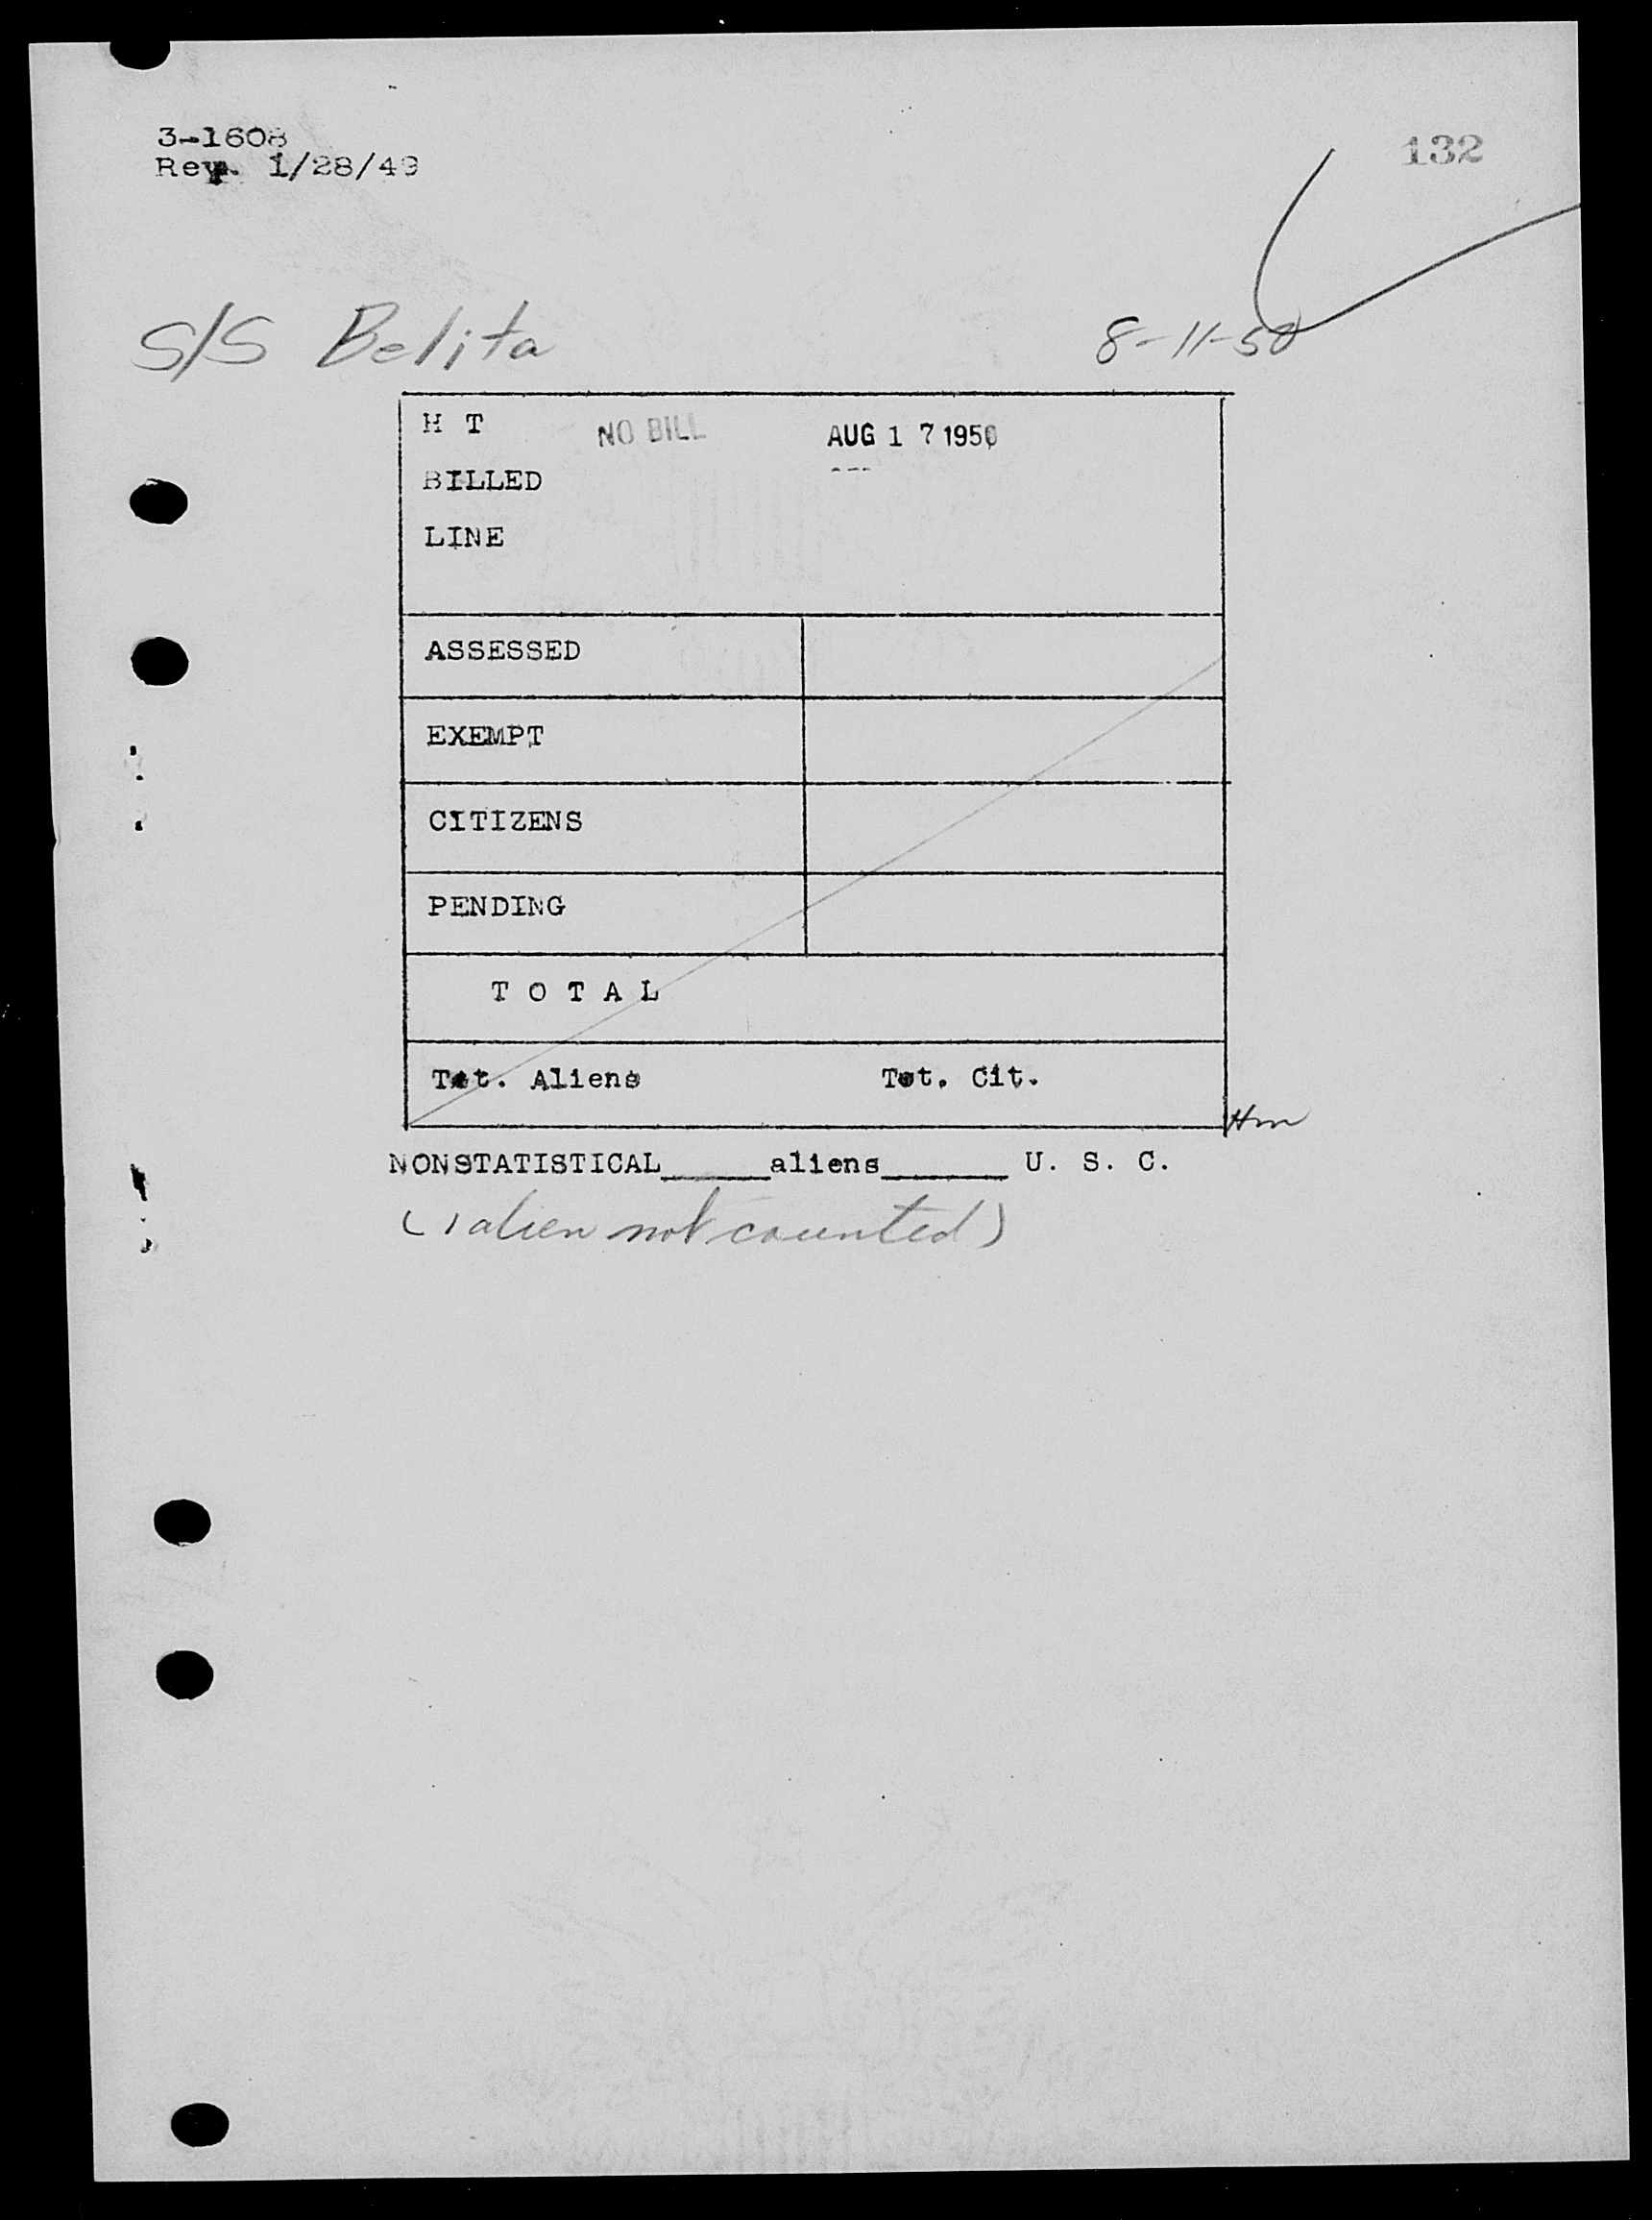 3-1608
Rev. 1/28/49
132
S/S Belita
8-11-50
H T
NO BILL
AUG 17 1950
BILLED
LINE
ASSESSED
EXEMPT
CITIZENS
PENDING
T O T A L
Tot. Aliens
Tot. Cit.
Hm
NONSTATISTICAL______aliens_______ U. S. C.
(1 alien not counted)